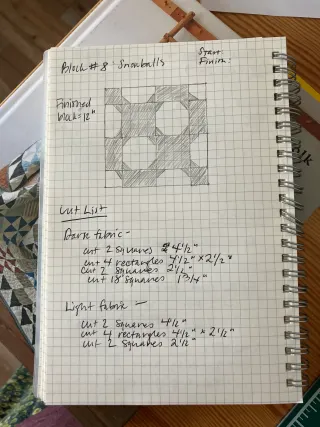 Block #8 Snowballs
Start:
Finish:
Finished
block=12"
Cut List
Dark fabric -
cut 2 squares 4 1/2"
cut 4 rectangles 4 1/2" x 2 1/2"
cut 2 squares 2 1/2"
cut 18 squares 1 3/4"
Light fabric -
cut 2 squares 4 1/2"
cut 4 rectangles 4 1/2" x 2 1/2"
cut 2 squares 2 1/2"